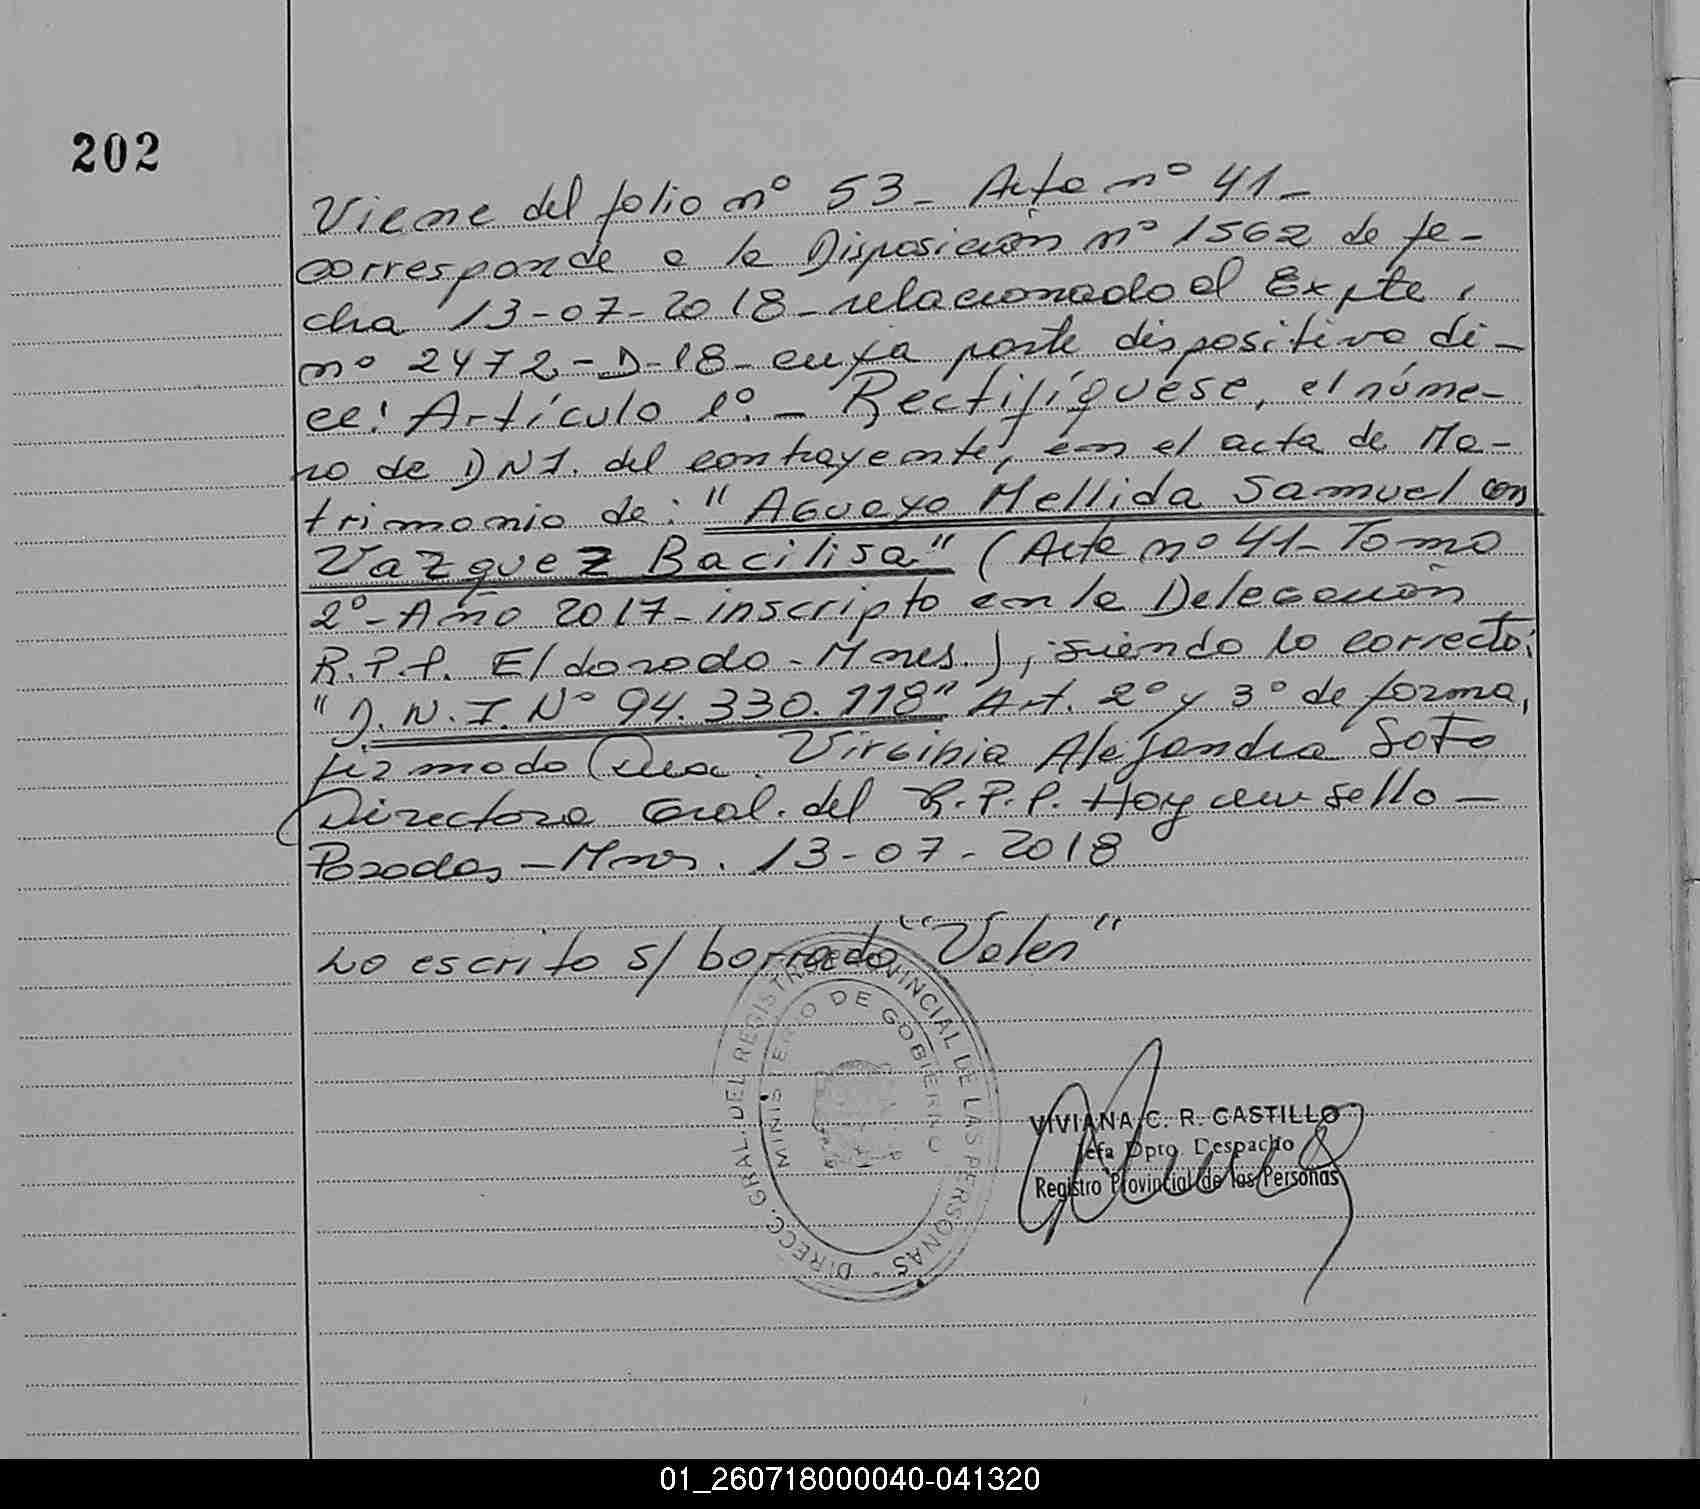 202
Viene del folio nº 53 - Acta nº 41 -
corresponde a la Disposición nº 1562 de fe-
cha 13-07-2018 - relacionado al Expte.
nº 2472-D-18 - cuya parte dispositiva di-
ce: Artículo 1º. - Rectifíquese, el núme-
ro de DNI. del contrayente, en el acta de Ma-
trimonio de: "Aguayo Mellida Samuel con
Vazquez Bacilisa" (Acta nº 41 - Tomo
2º - Año 2017 - inscripto en la Delegación
R.P.P. Eldorado - Mnes.), siendo lo correcto:
"D.N.I. Nº 94.330.118" Art. 2º y 3º de forma,
firmado Virginia Alejandra Soto
Directora Gral. del R.P.P. Hay un sello -
Posadas - Mnes. 13-07-2018
Lo escrito s/ borrado "Valen"
DIRECC. GRAL. DEL REGISTRO PROVINCIAL DE LAS PERSONAS
MINISTERIO DE GOBIERNO
VIVIANA C. R. CASTILLO
Jefa Dpto. Despacho
Registro Provincial de las Personas
01_260718000040-041320